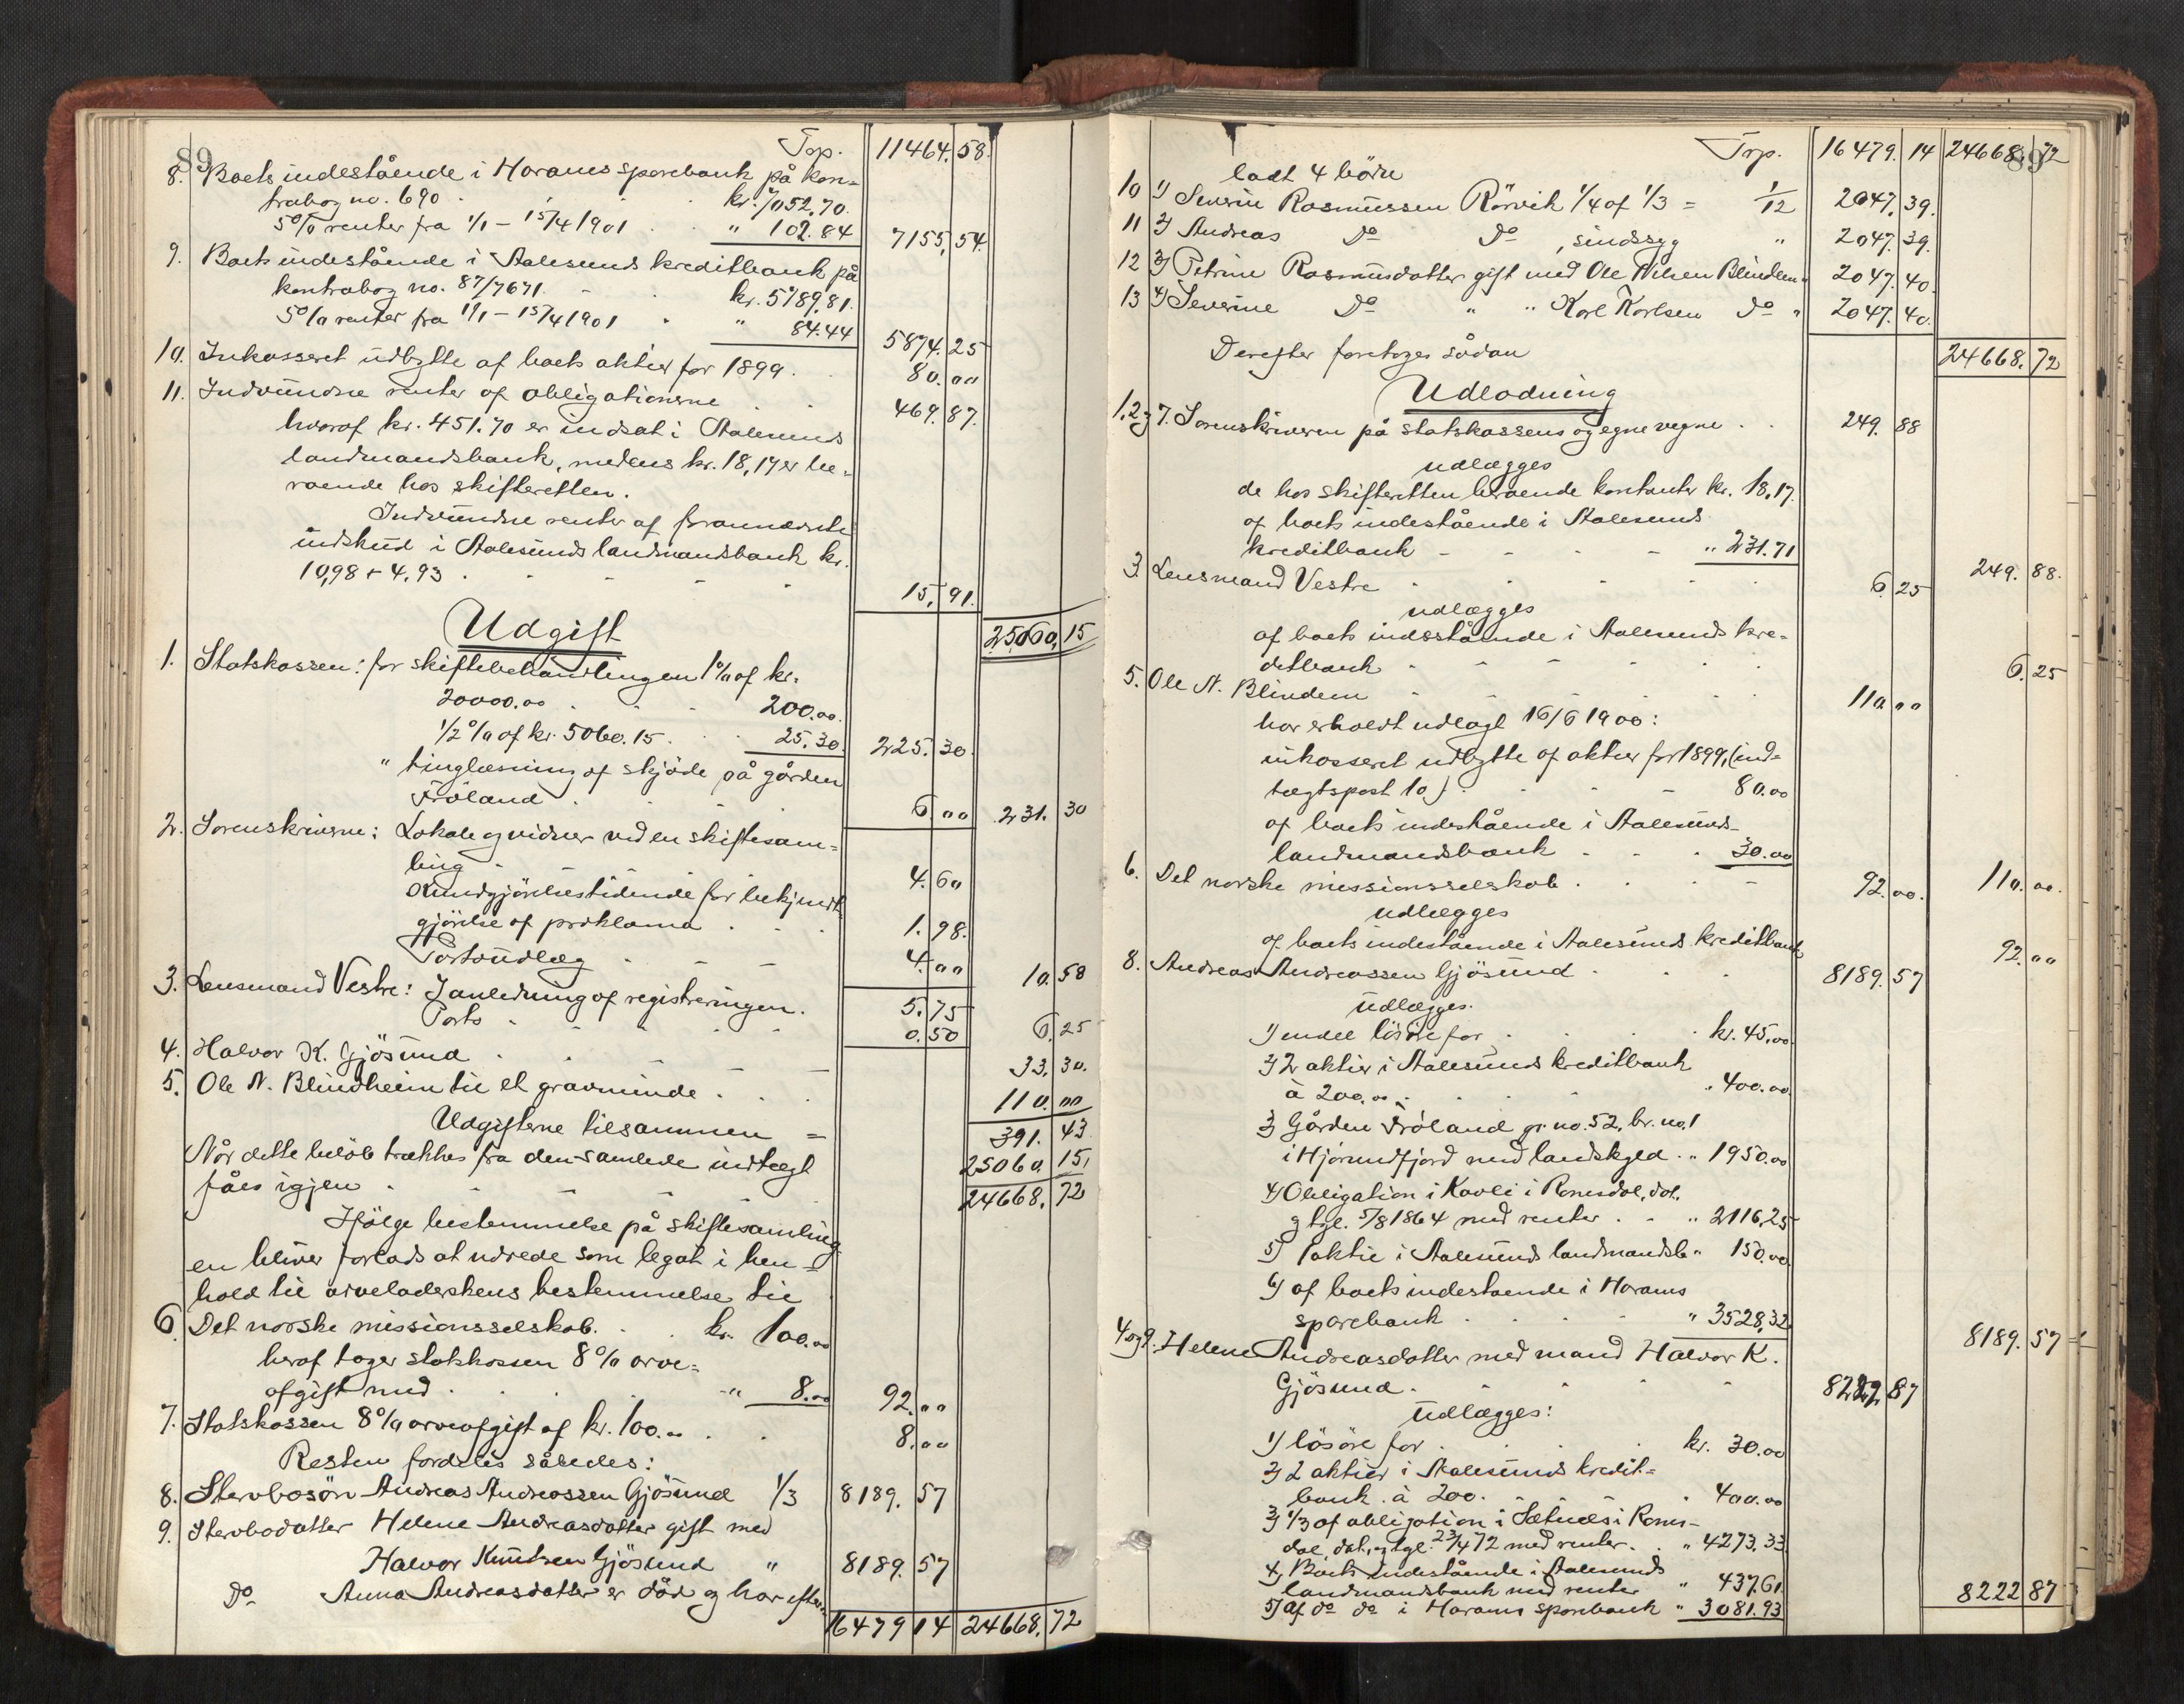 89
Trp. 11464.58.
8. Boets indestående i Harams sparebank på kon=
trabog no. 690 . . kr. 7052.70.
5% renter fra 1/1 – 15/4 1901 . . " 102.84 7155,54.
9. Boets indestående i Aalesunds kreditbank på
kontrabog no. 87/7671. - . kr. 5789,81.
5% renter fra 1/1 – 15/4 1901 . " 84.44 5874.25
10. Inkasseret udbytte af boets aktier for 1899 . . 80.00
11. Indvundne renter af obligationerne . . 469.87.
hvoraf kr. 451.70 er indsat i Aalesunds
landmandsbank, medens kr. 18,17 er be=
roende hos skifteretten.
Indvundne renter af forannævnte
indskud i Aalesunds landmandsbank kr.
10,98 + 4.93 . - - - - 15,91.
Udgift 25060,15
1. Statskassen: for skiftebehandlingen 1% af kr.
20000.00 . . - 200.00.
1/2 % af kr. 5060.15 . . . 25.30. 225.30.
" tinglæsning af skjøde på gården
Fröland . . - - 6,00 231.30
2. Sorenskriveren: Lokale og vidner ved en skiftesam=
ling - 4.60
Kundgjörelsestidende for bekjendt
gjörelse af proklama . . . 1.98.
Portoudlæg - - - 4.00 10.58
3. Lensmand Vestre: I anledning af registreringen. 5.75
Porto - - - - - 0.50 6,25
4. Halvor K. Gjösund . . - - 33.30.
5. Ole N. Blindheim til et gravminde . . . 110.00
Udgifterne tilsammen = 391.43
Når dette belöb trækkes fra den samlede indtægt 25060.15,
fåes igjen . - - - - 24668.72
Ifölge bestemmelse på skiftesamling
en bliver forlods at udrede som legat i hen=
hold til arveladerskens bestemmelse til
6. Det norske missionsselskab. . . kr. 100.00
heraf tager statskassen 8% arve=
afgift med . . . . " 8.00 92.00
7. Statskassen 8% arveafgift af kr. 100.00 . . 8.00
Resten fordeles således:
8. Stervbosön Andreas Andreassen Gjösund 1/3 8189.57
9. Stervbodatter Helene Andreasdatter gift med
Halvor Knutsen Gjösund " 8189.57
Do Anna Andreasdatter er död og har efter=
16479 14 24668.72
89
Trp. 16479.14 24668.72
ladt 4 börn
10 1) Severin Rasmussen Rörvik 1/4 af 1/3 = 1/12 2047.39.
11 2) Andreas Do Do , sindssyg " 2047.39.
12 3) Petrine Rasmusdatter gift med Ole Nilsen Blindem " 2047.40.
13 4) Severine Do " " Karl Karlsen Do " 2047.40.
Derefter foretoges sådan 24668.72
Udlodning
1.2 og 7. Sorenskriveren på statskassens og egne vegne . . 249.88
udlægges
de hos skifteretten beroende kontanter kr. 18,17.
af boets indestående i Aalesunds
kreditbank - - - - " 231.71 249.88.
3. Lensmand Vestre . - - - 6.25
udlægges
af boets indestående i Aalesunds kre=
ditbank . - - . . . 6.25
5. Ole N. Blindem . - - . . 110.00
har erholdt udlagt 16/6 1900:
inkasseret udbytte af aktier for 1899, (ind=
tægtspost 10) . . - - 80.00
af boets indestående i Aalesunds
landmandsbank - . . 30.00 110.00.
6. Det norske missionsselskab . . . - 92.00.
udlægges
af boets indestående i Aalesunds kreditbank 92.00
8. Andreas Andreassen Gjösund . . . 8189.57
udlægges.
1) endel lösöre for . . . . kr. 45,00
2) 2 aktier i Aalesunds kreditbank
à 200.00 . . . " 400.00.
3) Gården Fröland gr. no. 52, br. no. 1
i Hjörundfjord med landskyld . " 1950.00
4) Obligation i Kavli i Romsdal, dat.
og tgl. 5/8 1864 med renter . - " 2116,25
5) 1 aktie i Aalesunds landmandsb. " 150.00
6) af boets indestaaende i Harams
sparebank . . . . " 3528,32 8189.57
4 og 9. Helene Andreasdatter med mand Halvor K.
Gjösund . - - - - 8222,87
udlægges:
1) lösöre for . . . kr. 30.00
2) 2 aktier i Aalesunds kredit=
bank à 200. - . . 400.00
3) 1/3 af obligation i Sætnes i Roms-
dal, dat. og tgl. 23/4 72 med renter. . " 4273.33
4) Boets indestående i Aalesunds
landmandsbank med renter " 437.61
5) af do do i Harams sparebank " 3081.93 8222 87